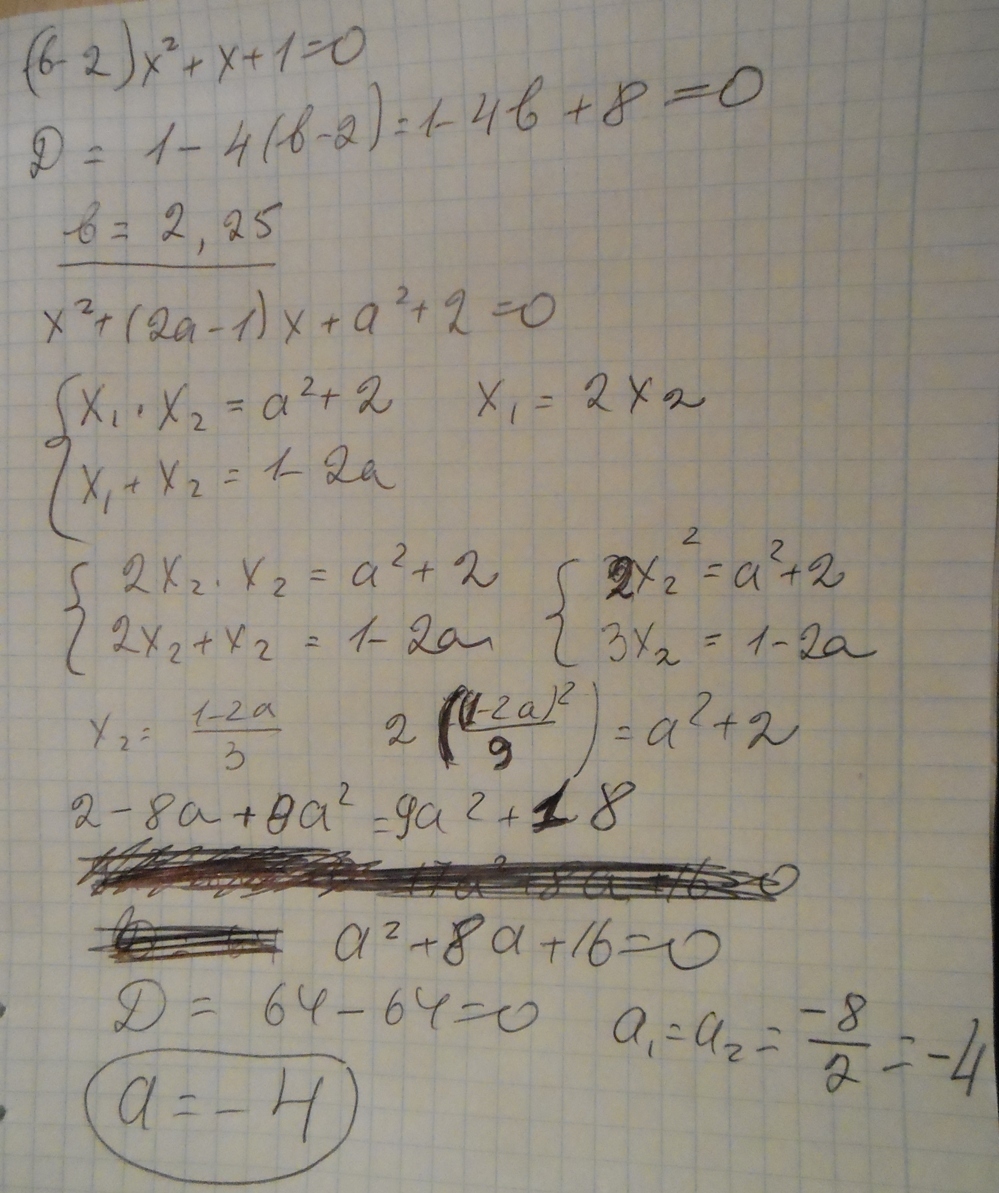 (b-2)x²+x+1=0
D = 1-4(b-2)=1-4b+8=0
b=2,25
x²+(2a-1)x+a²+2=0
{x₁·x₂=a²+2 x₁=2x₂
x₁+x₂=1-2a
{2x₂·x₂=a²+2 {2x₂²=a²+2
2x₂+x₂=1-2a 3x₂=1-2a
x₂=(1-2a)/3 2((1-2a)²/9)=a²+2
2-8a+8a²=9a²+18
17a²+8a+16=0
a²+8a+16=0
D=64-64=0 a₁=a₂=-8/2=-4
a=-4